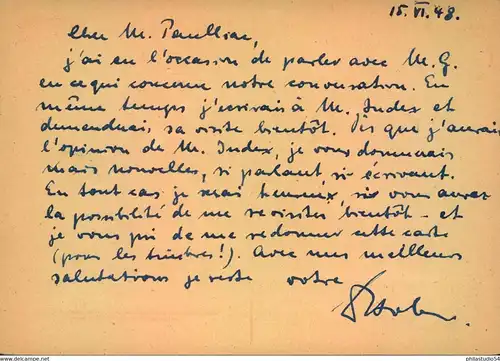 15. VI. 48.
Cher M. Paulliac,
j'ai eu l'occasion de parler avec M. G.
en ce qui concerne notre conversation. En
même temps j'écrivais à M. Index et
demandais sa visite bientôt. Dis que j'aurais
l'opinion de M. Index, je vous donnerais
mais nouvelles, si parlant si écrivant.
En tout cas je serai heureux, si vous avez
la possibilité de me revister bientôt - et
je vous pri de me redonner cette carte
(pour les timbres!). Avec mes meilleurs
salutations je reste votre
www.delcampe.net
philastudio54